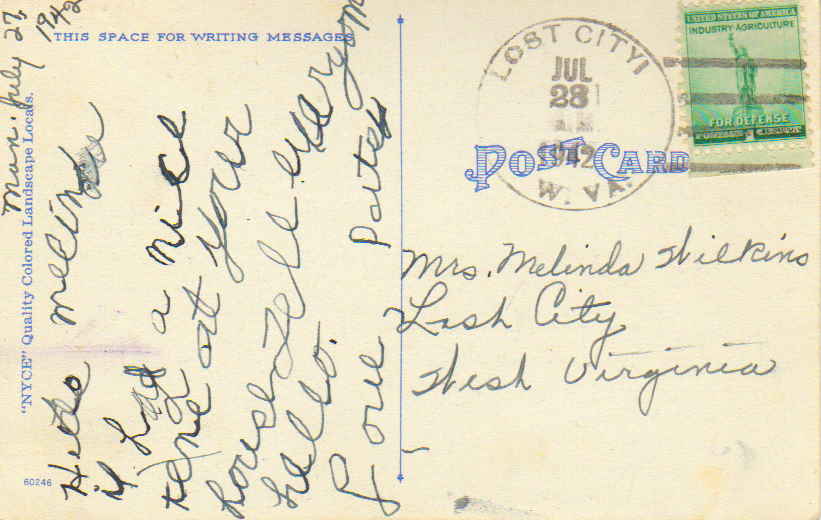 THIS SPACE FOR WRITING MESSAGES
Mon. July 27,
1942
Hello Melinda
I had a nice
time at your
house Tell everyone
hello.
Love
"NYCE" Quality Colored Landscape Locals.
60246
LOST CITY
JUL
28
A.M.
1942
W. VA.
POST CARD
UNITED STATES OF AMERICA
INDUSTRY-AGRICULTURE
FOR DEFENSE
Mrs. Melinda Wilkins
Lost City
West Virginia